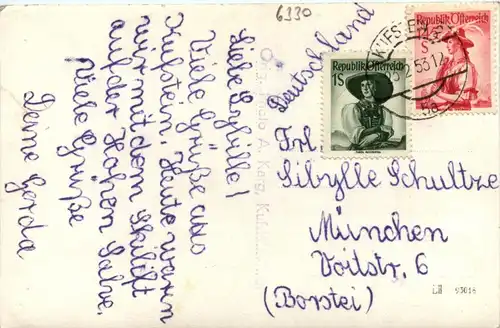 6330
Deutschland
Republik Österreich
1S
Republik Österreich
S
Liebe Sybille!
Viele Grüße aus
Kufstein. Heute waren
wir mit dem Skilift
auf der Hohen Salve.
Viele Grüße
Deine Gerda
Photo A. Karg,
Frl.
Sibylle Schultze
München
Voitstr. 6
(Borstei)